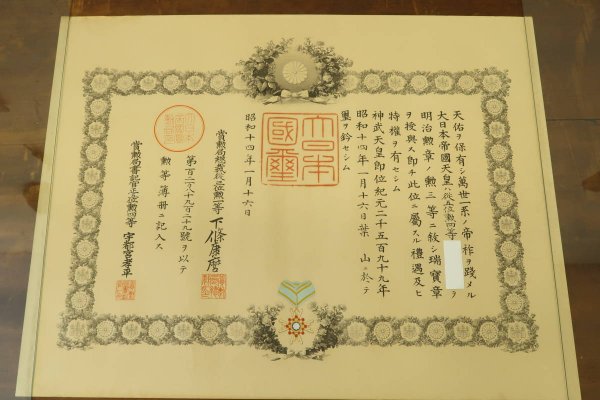 天佑ヲ保有シ萬世一系ノ帝祚ヲ踐メル
大日本帝國天皇ハ從五位勲四等
ヲ
明治勲章ノ勲三等ニ敘シ瑞寶章
ヲ授與ス即チ此位ニ屬スル禮遇及ヒ
特權ヲ有セシム
神武天皇即位紀元二千五百九十九年
昭和十四年一月十六日葉山ニ於テ
璽ヲ鈐セシム
大日本國璽
昭和十四年一月十六日
賞勲局總裁從三位勲一等下條康麿
第百二十八萬九百二十九號ヲ以テ
勲等簿册ニ記入ス
賞勲局書記官正五位勲四等宇都宮孝平